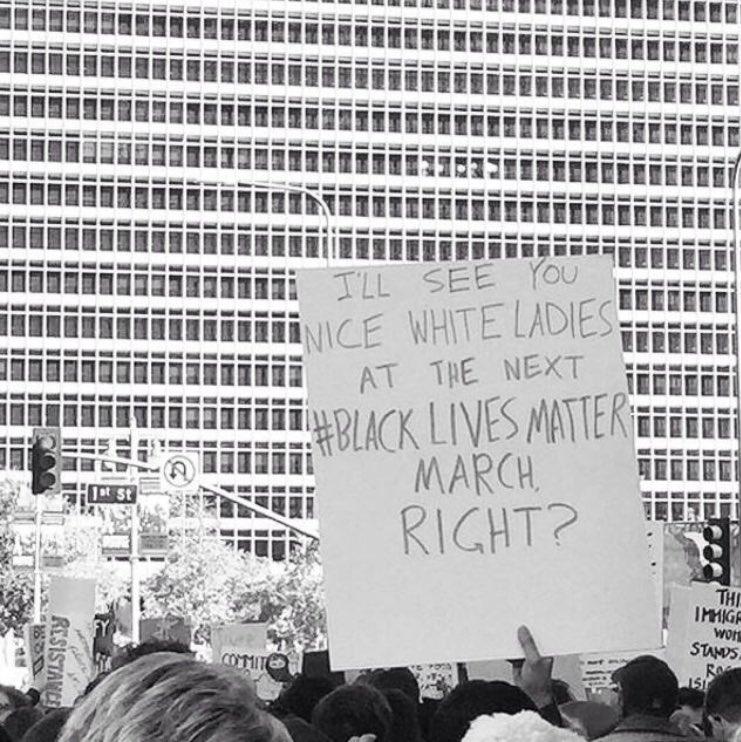 I'LL SEE YOU
NICE WHITE LADIES
AT THE NEXT
#BLACK LIVES MATTER
MARCH,
RIGHT?
1st St
RESISTANCE
COMMIT
THI
IMMIGR
WOM
STANDS